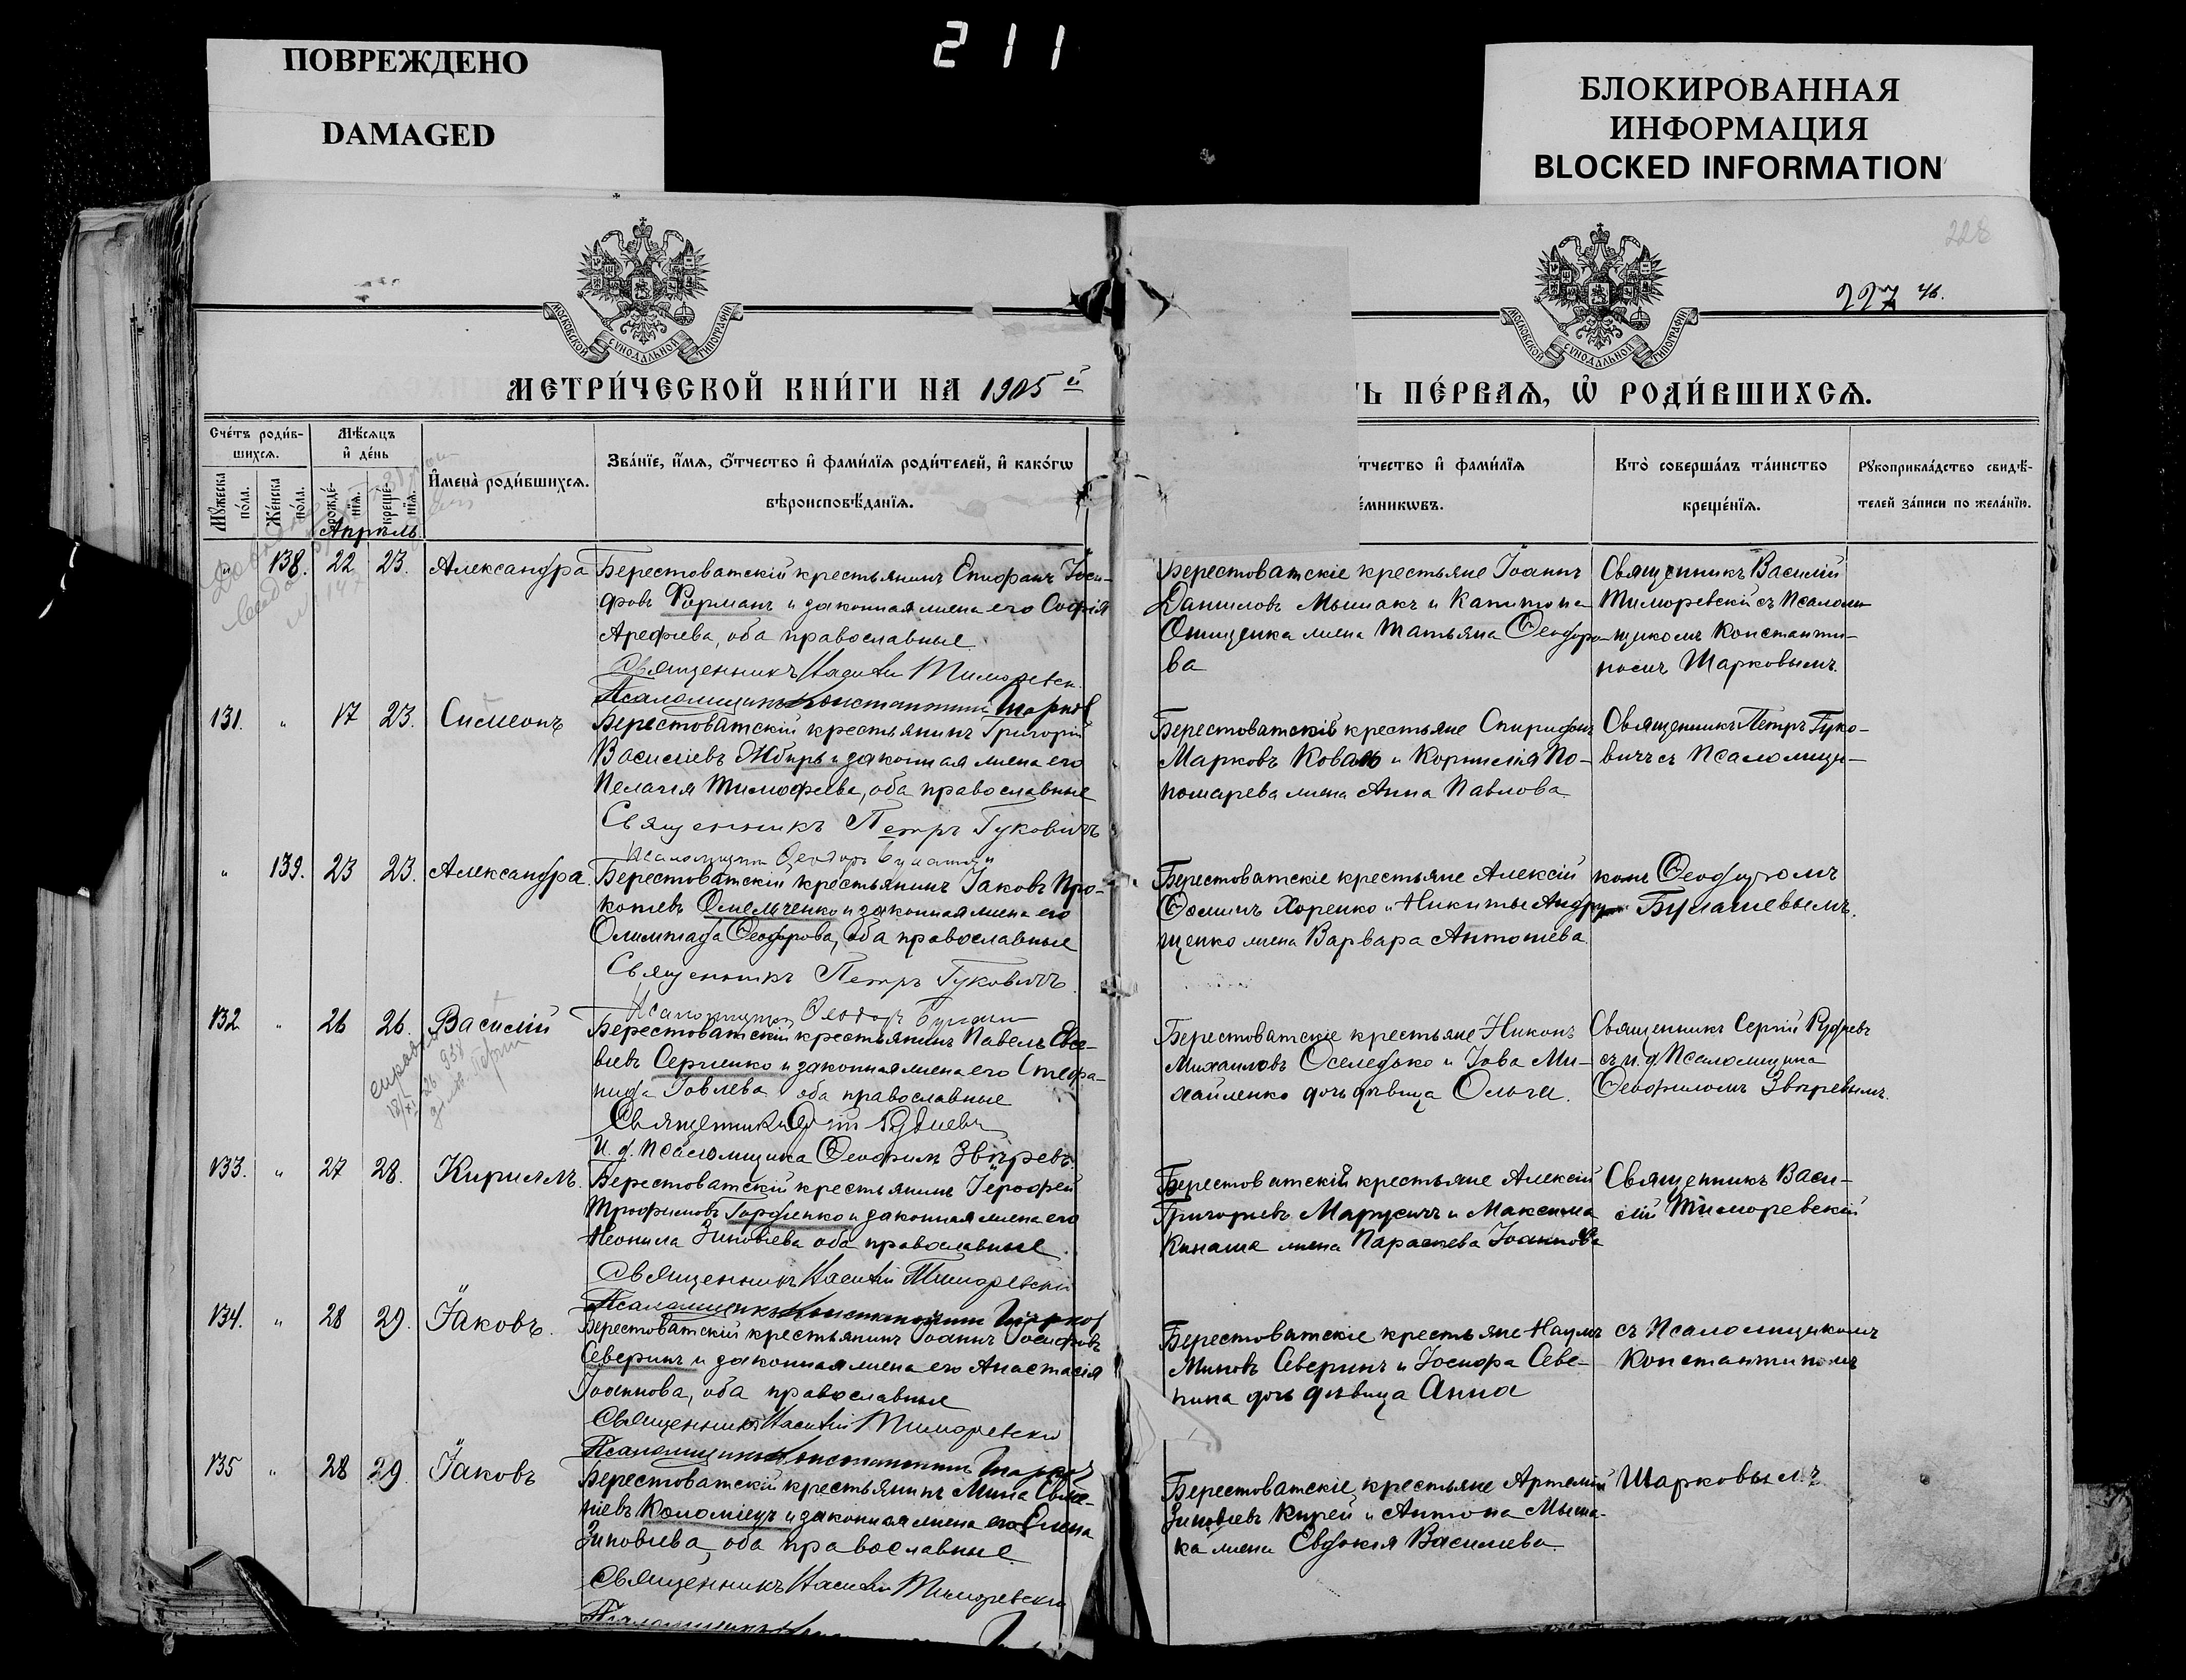 211
ПОВРЕЖДЕНО
DAMAGED
БЛОКИРОВАННАЯ
ИНФОРМАЦИЯ
BLOCKED INFORMATION
228
227 об.
МОСКОВСКОЙ СУНОДАЛЬНОЙ ТИПОГРАФІИ
МОСКОВСКОЙ СУНОДАЛЬНОЙ ТИПОГРАФІИ
МЕТРИ́ЧЕСКОЙ КНИ́ГИ НА 1905 й
Ь ПЕ́РВАѦ, Ѡ҆ РОДИ́ВШИХСѦ.
Сче́тъ роди́в-
шихсѧ.
Мѣ́сѧцъ
и҆ де́нь
Мꙋ́жеска
по́ла.
Же́нска
по́ла.
рожде́-
нїѧ.
креще́-
нїѧ.
И҆мена̀ роди́вшихсѧ.
Зва́нїе, и҆́мѧ, ѻ҆́тчество и҆ фами́лїѧ роди́телей, и҆ како́гѡ
вѣроисповѣ́данїѧ.
ѻ҆́тчество и҆ фами́лїѧ
е́мникѡвъ.
Кто̀ соверша́лъ та́инство
креще́нїѧ.
Рꙋкоприкла́дство свидѣ́-
телей за́писи по жела́нїю.
Апрѣль.
" 138. 22 23. Александра
Берестоватскій крестьянинъ Епифанъ Іоси-
фовъ Фурманъ и законная жена его Софія
Арефіева, оба православные.
Священникъ Василій Тиморевскій
Псаломщикъ Константинъ Шарков
Берестоватскіе крестьяне Іоаннъ
Даниловъ Мышакъ и Капитона
Онищенка жена Татьяна Ѳеодоро-
ва
Священникъ Василій
Тиморевскій съ Псалом-
щикомъ Константи-
номъ Шарковымъ.
131. " 17 23. Симеонъ
Берестоватскій крестьянинъ Григорій
Василіевъ Жбырь и законная жена его
Пелагія Тимофеева, оба православные
Священникъ Петръ Гуковичъ
Псаломщикъ Ѳеодоръ
Берестоватскіе крестьяне Спиридонъ
Марковъ Коваль и Корнилія По-
номарева жена Анна Павлова.
Священникъ Петръ Гуко-
вичъ съ Псаломщи-
" 139. 23 23. Александра.
Берестоватскій крестьянинъ Іаковъ Про-
копіевъ Омельченко и законная жена его
Олимпіада Ѳеодорова, оба православные
Священникъ Петръ Гуковичъ.
Псаломщикъ Ѳеодоръ
Берестоватскіе крестьяне Алексій
Ѳоминъ Хоренко и Никиты Андру-
щенко жена Варвара Антоніева.
комъ Ѳеодоромъ
132 " 26 26. Василій
Берестоватскій крестьянинъ Павелъ Евсе-
віевъ Сергіенко и законная жена его Стефа-
нида Іовлева оба православные
Священникъ
И. д. Псаломщика Ѳеофилъ Звѣревъ.
Берестоватскіе крестьяне Никонъ
Михаиловъ Оселедько и Іова Ми-
хайленко дочь дѣвица Ольга.
Священникъ Сергій
съ и. д. Псаломщика
Ѳеофиломъ Звѣревымъ.
133. " 27 28. Кириллъ.
Берестоватскій крестьянинъ Іероѳей
Трофимовъ Гордіенко и законная жена его
Неонила Зиновіева оба православные.
Священникъ Василій Тиморевскій
Псаломщикъ Константинъ Шарков
Берестоватскій крестьяне Алексій
Григоріевъ Марусичъ и Максима
Кинаша жена Параскева Іоаннова
Священникъ Васи-
лій Тиморевскій
134. " 28 29. Іаковъ.
Берестоватскій крестьянинъ Іоаннъ Іосифовъ
Северинъ и законная жена его Анастасія
Іоаннова, оба православные
Священникъ Василій Тиморевскій
Псаломщикъ Константинъ Шарков
Берестоватскіе крестьяне Наумъ
Миновъ Северинъ и Іосифа Севе-
рина дочь дѣвица Анна
съ Псаломщикомъ
Константиномъ
135 " 28 29. Іаковъ
Берестоватскій крестьянинъ Мина
Коломіецъ и законная жена его Елена
Зиновіева, оба православные.
Священникъ Василій Тиморевскій
Псаломщикъ
Берестоватскіе крестьяне Артемій
Зиновіевъ Кирей и Антона Мыша-
ка жена Евдокія Василіева.
Шарковымъ